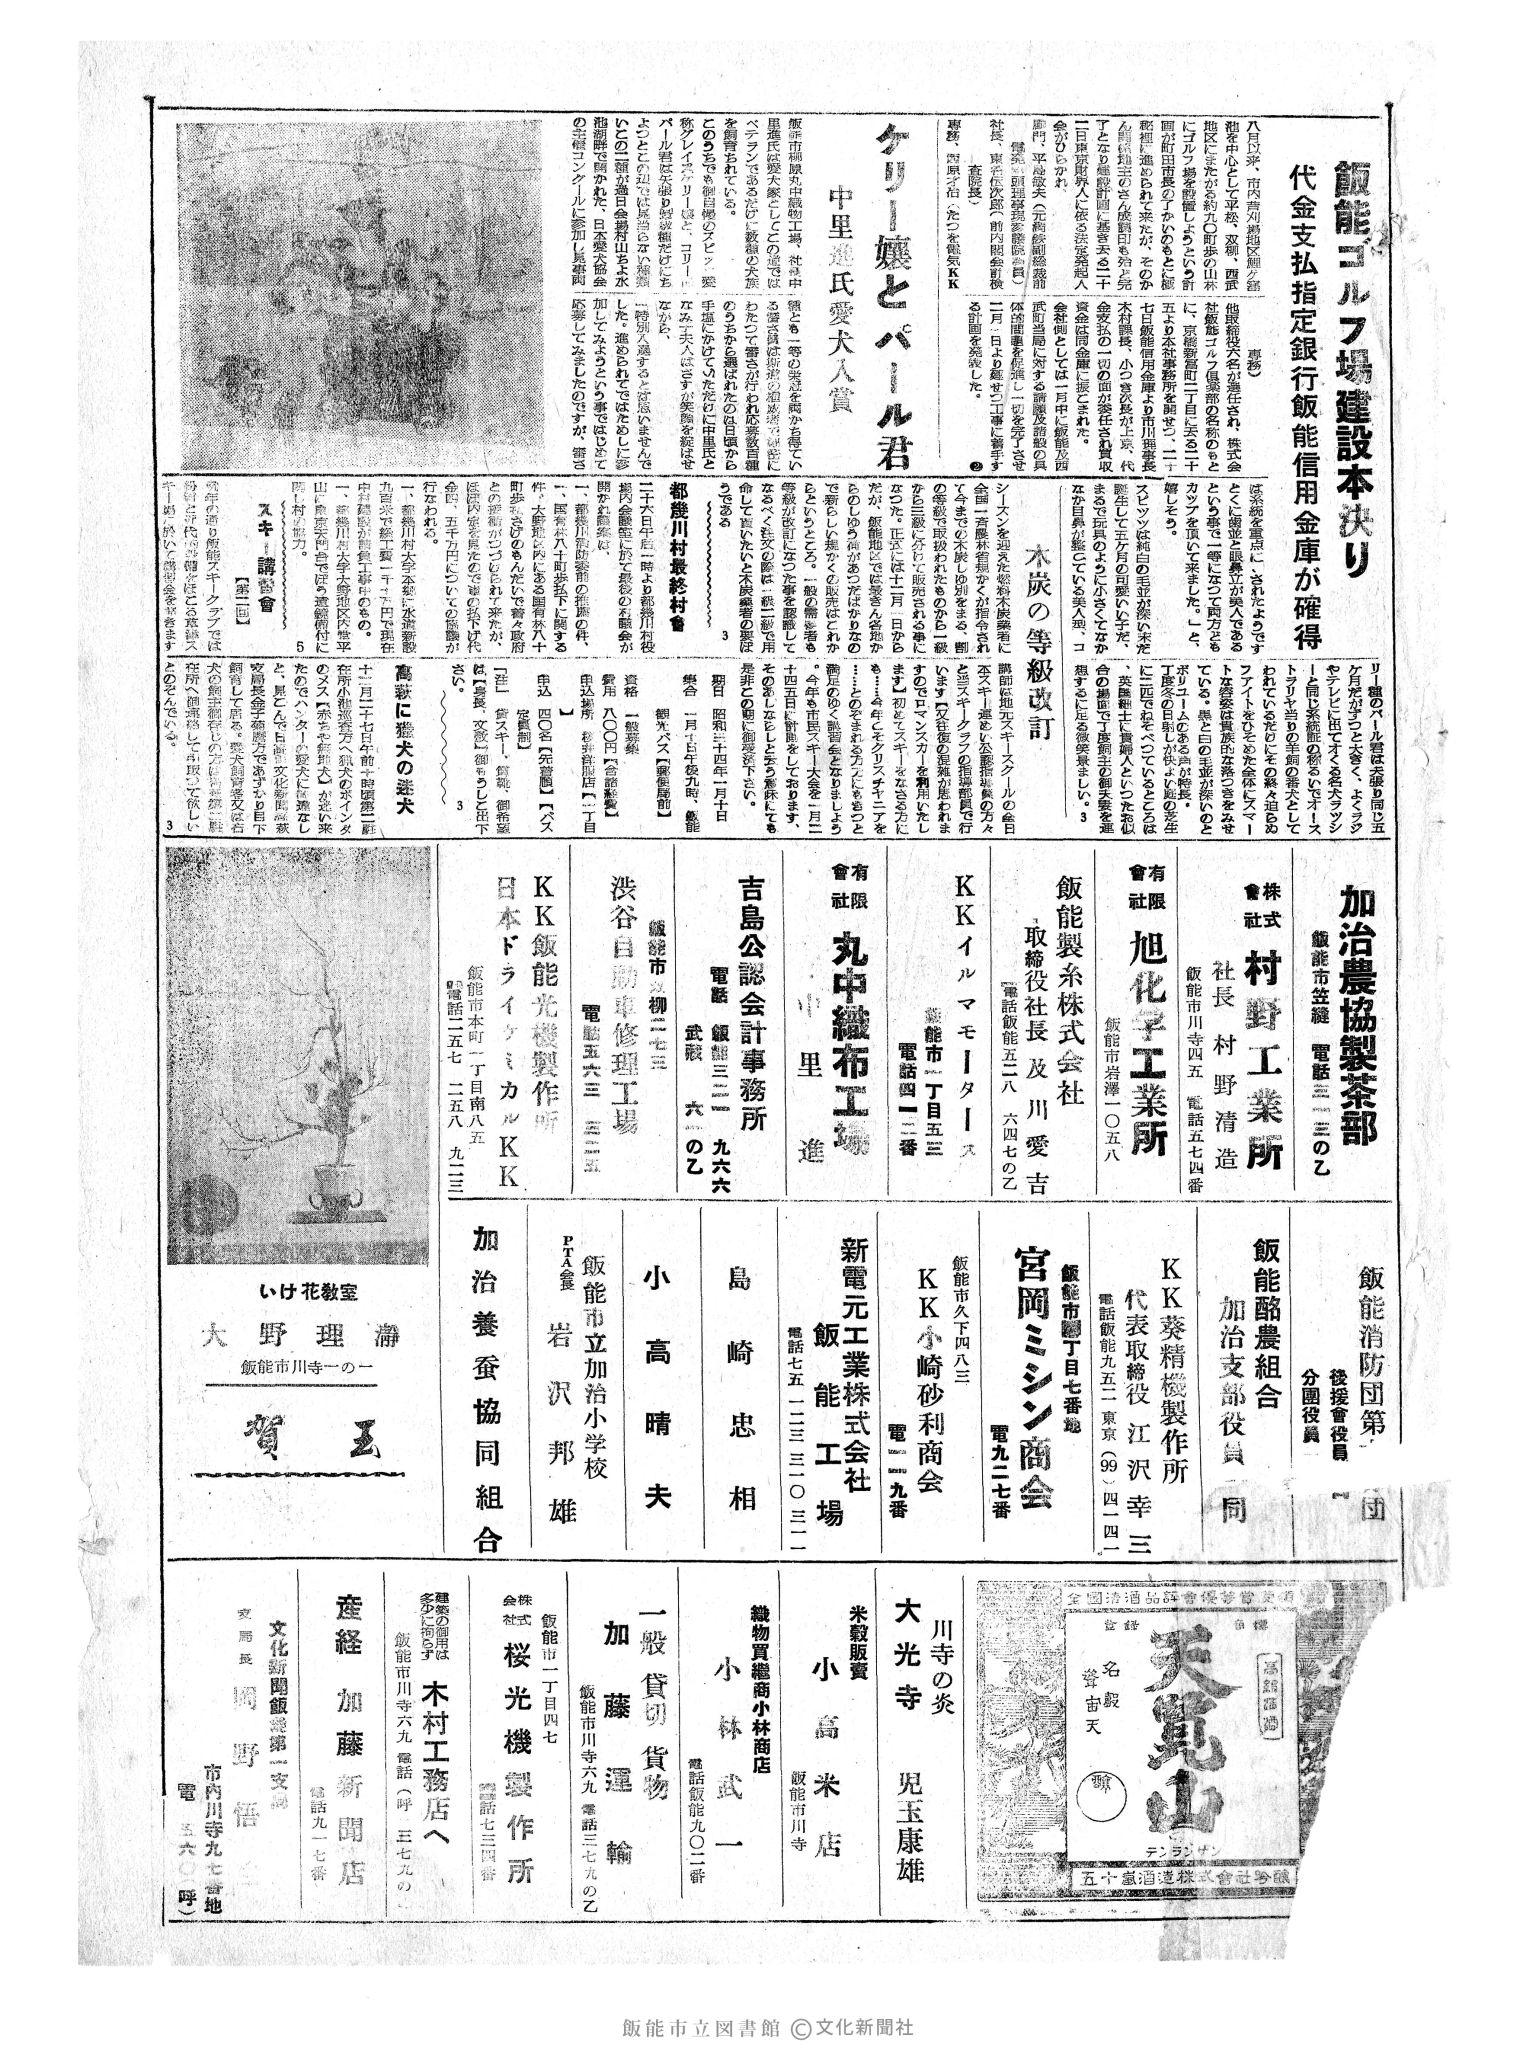 飯能ゴルフ場建設本決り
代金支払指定銀行飯能信用金庫が確得
八月以来、市内芦刈場地区鯉ケ
池を中心として平松、双柳、西武
地区にまたがる約九〇町歩の山林
にゴルフ場を設置しようという計
画が町田市長の了かいのもとに極
秘裡に進められて来たが、そのか
了となり建設計画に基き去る二十
二日東京財界人に依る法定発起人
会がひらかれ、
専務)
他取締役六名が選任され、株式会
社飯能ゴルフ倶楽部の名称のもと
に、京橋新富町二丁目に去る二十
五より本社事務所を開せつ、二十
七日飯能信用金庫より市川理事長
木村課長、小つき次長が上京、代
金支払の一切の面が委任され買収
資金は同金庫に振こまれた。
会社側としては一月中に飯能及西
武町当局に対する請願及諸般の具
体的問事を促進し一切を完了させ
二月一日より建せつ工事に着手す
る計画を発表した。
ケリー嬢とパール君
中里進氏愛犬入賞
飯能市柳原丸中織物工場、社長中
里進氏は愛犬家としてこの道では
ベテランであるだけに数種の犬族
を飼育されている。
このうちでも御自慢のスピッツ愛
称グレイス・ケリー嬢と、コリー
パール君は矢張り好敵種だけにち
よつとこの辺では見当らない種類
いこの二頭が過日会場村山ちよ水
池湖畔で開かれた、日本愛犬協会
の主催コンクールに参加し見事両
頭とも一等の栄冠を両かち得てい
わたつて審さが行われ応募数百種
のうちから選ばれたのは日頃から
手塩にかけていただけに中里氏と
なみ子夫人はさすが笑顔を綻ばせ
ながら、
「特別入選するとは思いませんで
した。進められてではためしに参
加してみようという事ではじめて
応募してみましたのですが、審さ
は系統を重点に、されたようです
とくに歯並と眼鼻立が美人である
という事で一等になつて両方とも
カツプを頂いて来ました。」と、
嬉しそう。
スピツツは純白の毛並が深い未だ
誕生して五ケ月の可愛いい子だ、
まるで玩具のように小さくてなか
なか目鼻が整つている美人型、コ
リー種のパール君は矢張り同じ五
ケ月だがずつと大きく、よくラジ
オやテレビに出てくる名犬ラツシ
ーと同じ系統証の称るいでオース
トラリヤ当りの羊飼の番犬として
われているだけにその終々迫らぬ
フアイトをひそめた全体にスマー
トな姿姿は貴族的な落つきをみせ
ている。黒と白の毛並が深いのと
ボリユームのある声が特長・
丁度冬の日射しが快よい庭の芝生
に二匹でねそべつているところは
、英国紳士に貴婦人といつたお似
合の場面で丁度飼主の御夫妻を連
想するに足る微笑景ましい。3
木炭の等級改訂
シーズンを迎えた燃料木炭業者に
全国一斉農林省規かくが指令され
て今までの木炭しゆ別をまる、割
の等級で取扱われたものから一級
から三級に分けて販売される事に
なつた。正式には十二月一日から
だが、飯能地区では最きん各地か
らのしゆう荷があつたばかりなの
で新らしい規かくの販売はこれか
らというところ。一般の需要者も
等級が改訂になつた事を認識して
なるべく注文の際は一級二級で用
命して貰いたいと木炭業者の要ぼ
うである 3
都幾川村最終村會
二十六日午后一時より都幾川村役
場内会議室に於て最後の村議会が
開かれ議案は、
一、都幾川消防委前の推薦の件、
一、国有林八十町歩払下に関する
件。大野地区内にある国有林八十
町歩払さげのもんだいで着々政府
との接衝がつづけられて来たが、
ほぼ内定を見たので軍の払下げ代
金四、五千万円についての協議が
行なわれる。
一、都幾川村大字本郷に水道新設
九百米で総工費一千二千万円で現在
中村建設が請負工事中のもの。
一、都幾川村大字大野地区内堂平
山に東京天門台でぼう遠鏡備付に
関し村の協力。 5
スキー講習會
【第二回】
講師は地元スキースクールの全日
本スキー連めい公認指導員の方々
と当スキークラブの指導部員で行
います【又往復の混雑が思われま
すのでロマンスカーを利用いたし
ます】初めてスキーをなさる方に
も……今年こそクリスチャニアを
……とのぞまれる方にももつと
満足のゆく講習会となりましよう
。今年も市民スキー大会を一月二
十四五日に計画をしております、
そのあしならしと云う意味にても
是非この期に御受講下さい。
期日 昭和三十四年一月十日
集合 一月十日午後九時、飯能
観光バス【郵便局前】
資格 一般募集
費用 八〇〇円【含諸経費】
申込場所 桜井洋服店【二丁目
】
申込 四〇名【先着順】【バス
定員制】
【注】 貸スキー、貸靴、御希望
は【身長、文数】御もうしこ出下
さい。 3
高萩に猟犬の迷犬
十二月二十七日午前十時頃第二駐
在所小池巡査方へ猟犬のポインタ
のメス【赤ちや無地犬】が迷い来
たのでハンターの愛犬に間違なし
と、見こんで日高町文化新聞高萩
支局長金子菊麿方であずかり目下
飼育して居る。愛犬飼育者又は右
犬の飼主御存じの方は高萩第二駐
在所へ御連絡して引取つて欲しい
とのぞんでいる。 3
加治農協製茶部
飯能市笠縫 電話三一三の乙
株式會社 村野工業所
社長 村野清造
飯能市川寺四五 電話五七四番
有限會社 旭化学工業所
飯能市岩澤一〇五八
飯能製糸株式会社
取締役社長 及川愛吉
電話飯能五二八 六四七の乙
KKイルマモータース
飯能市一丁目五三
電話四一二番
有限會社 丸中織布工場
中里進
吉島公認会計事務所
電話 飯能三二一 九六六
武蔵 六一の乙
渋谷自動車修理工場
飯能市双柳二七三
電話五六三 三二五
KK飯能光機製作所
日本ドライケミカルKK
飯能市本町一丁目南八五
電話二五七 二五八 九二三
飯能消防団第
後援會役員一
分團役員
飯能酪農組合
加治支部役員一同
KK葵精機製作所
代表取締役 江沢幸三
電話飯能九五二 東京(99)四一四一
飯能市 丁目七番地
宮岡ミシン商会
電九二七番
飯能市久下四八三
KK小崎砂利商会
電二一九番
新電元工業株式会社
飯能工場
電話七五 一二三 三一〇 三一一
島崎忠相
小高晴夫
飯能市立加治小学校
PTA会長 岩沢邦雄
加治養蚕協同組合
いけ花教室
大野理濤
飯能市川寺一の一
賀玉
全國清酒品評會優等賞受領
登録 商標
天覧山
名殿
聲宙天
テンランザン
五十嵐酒造株式會社吟醸
川寺の炎
大光寺 児玉康雄
米穀販賣
小高米店
飯能市川寺
織物買繼商小林商店
小林武一
電話飯能九〇二番
一般貸切貨物
加藤運輸
飯能市川寺六九 電話三七九の乙
飯能市一丁目四七
株式会社 桜光機製作所
電話七三四番
建築の御用は
多少に拘らず
木村工務店へ
飯能市川寺六九 電話(呼)三七九の
産経 加藤新聞店
電話九一七番
文化新聞飯能第一支局
支局長 岡野悟
市内川寺九七番地
電 五六〇(呼)
飯能市立図書館 ©文化新聞社